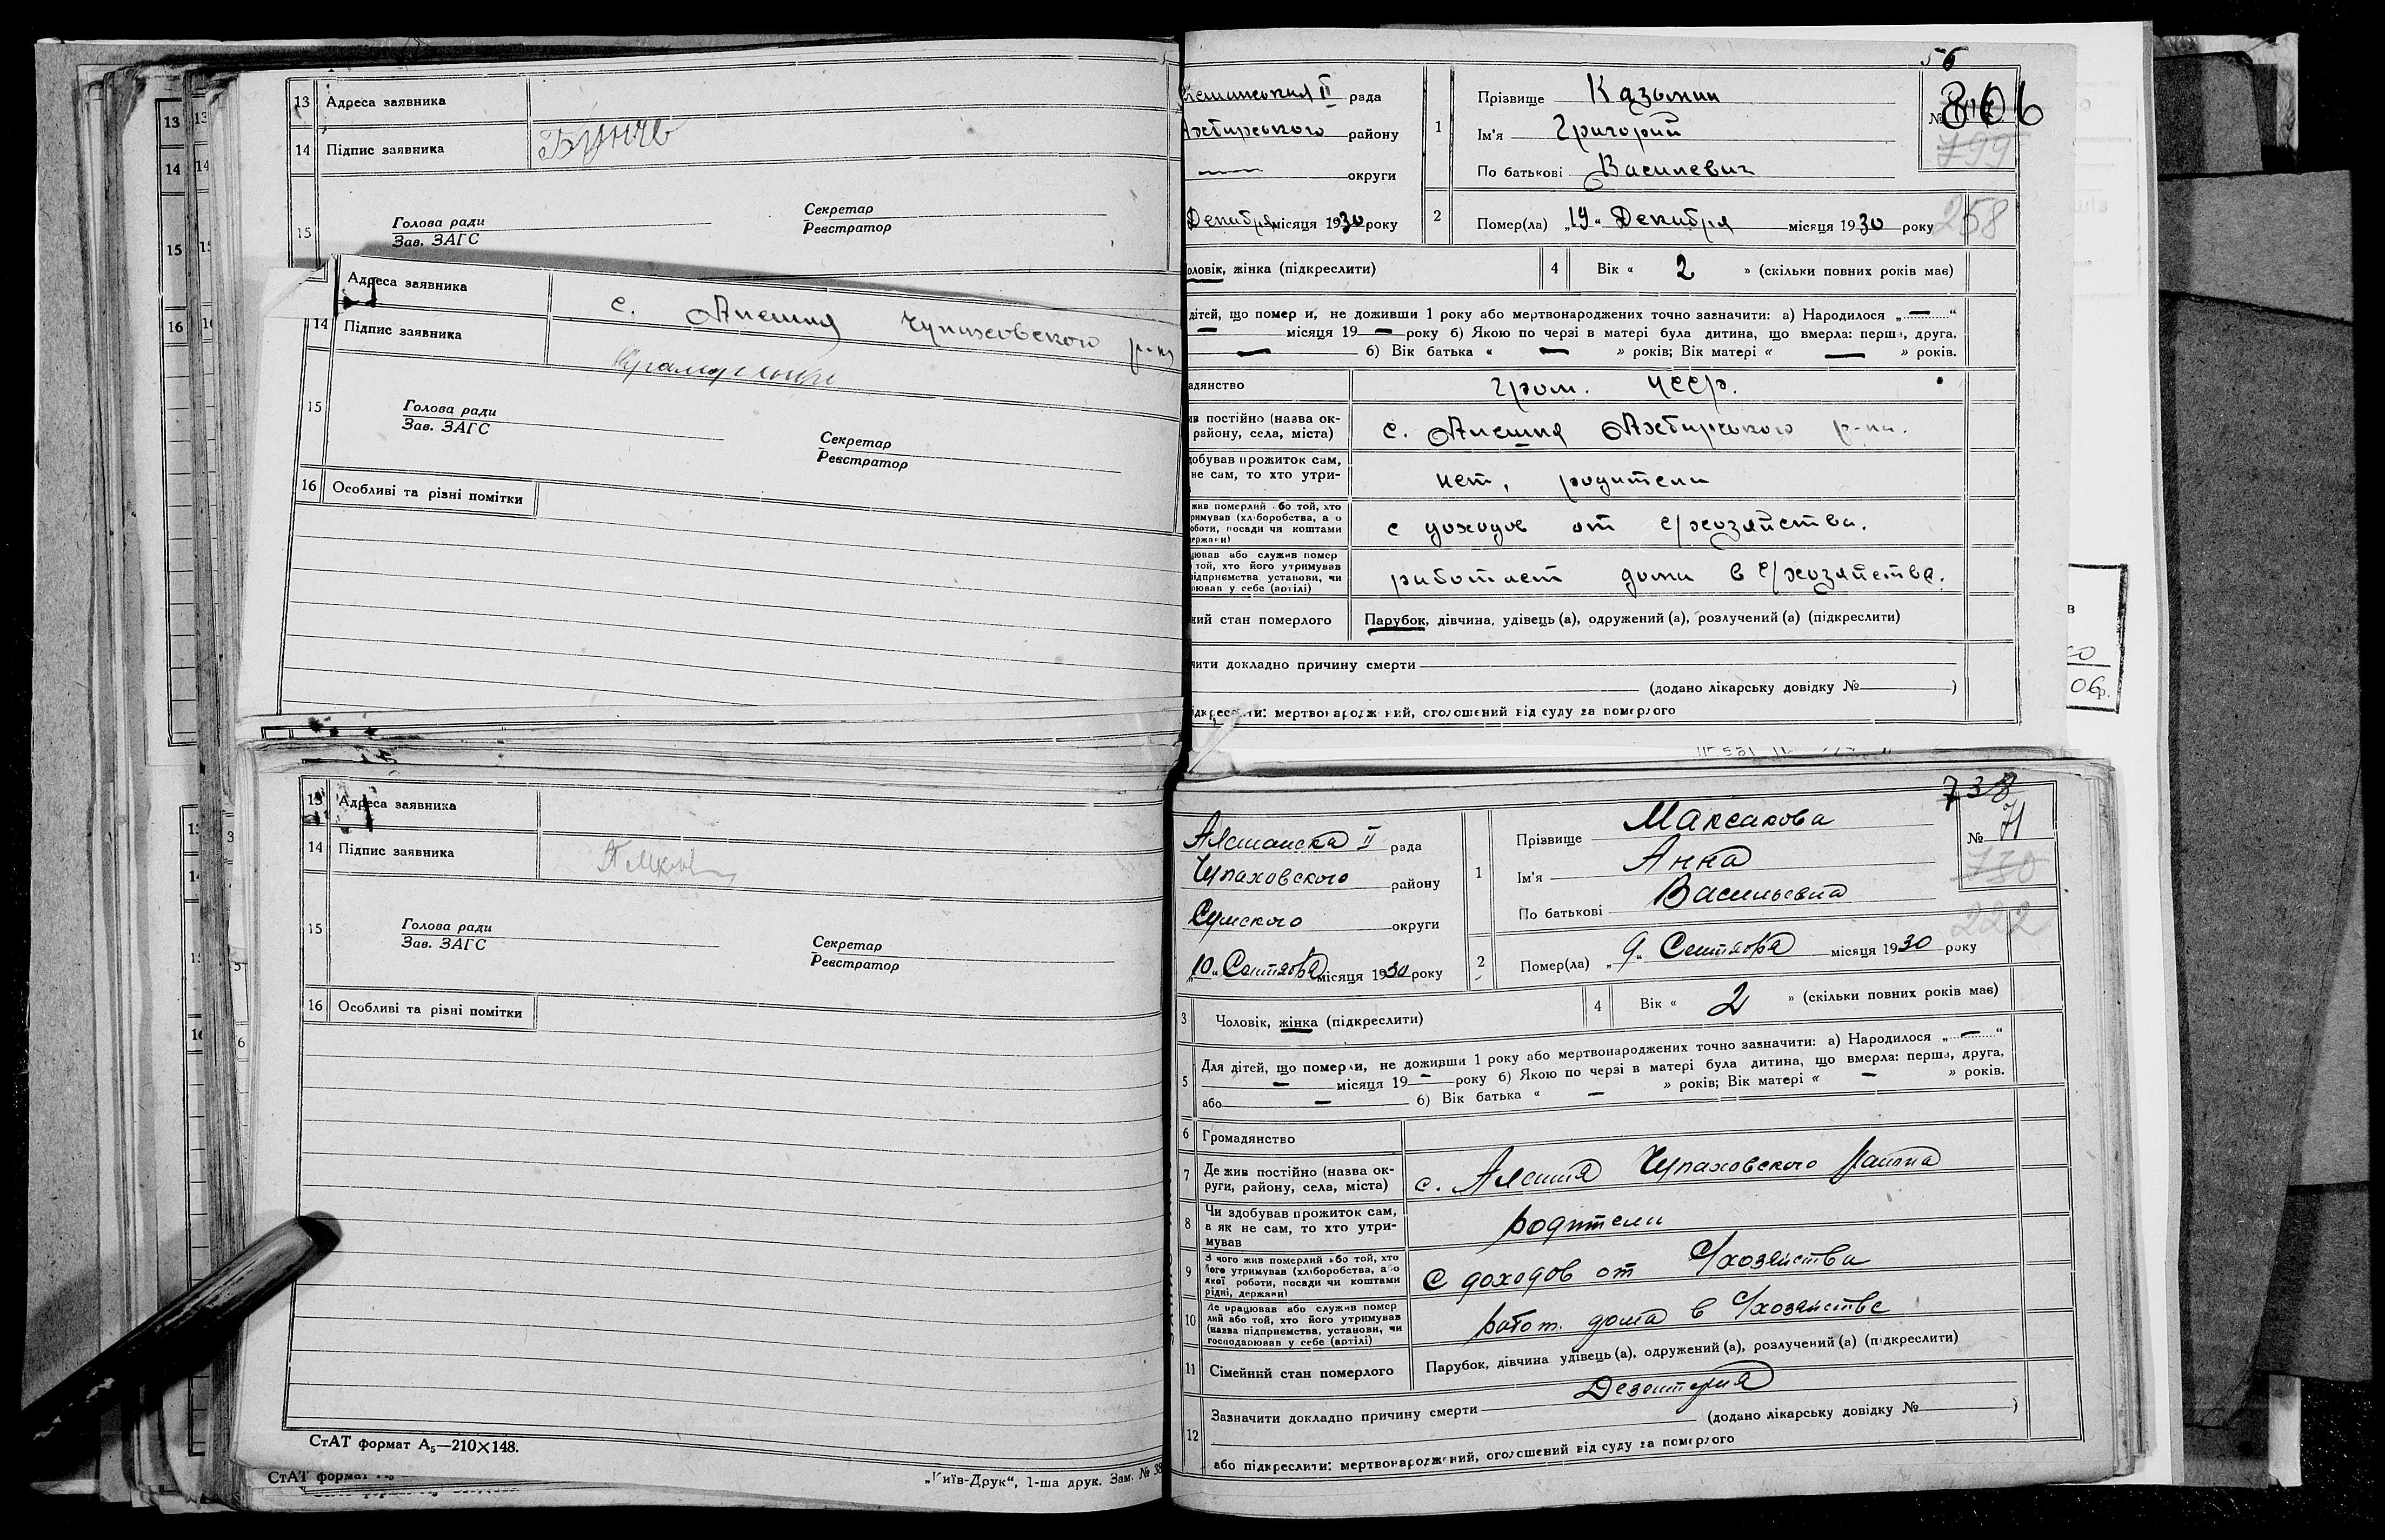 13 Адреса заявника
14 Підпис заявника
15 Голова ради
Зав. ЗАГС
Секретар
Реєстратор
Адреса заявника с. Алешня Чупаховского р-на
14 Підпис заявника
15 Голова ради
Зав. ЗАГС
Секретар
Реєстратор
16 Особливі та різні помітки
13 Адреса заявника
14 Підпис заявника
15 Голова ради
Зав. ЗАГС
Секретар
Реєстратор
16 Особливі та різні помітки
СтАТ формат А₅—210×148.
СтАТ
„Київ-Друк“, 1-ша друк. Зам. № 38
56
806
799
258
II рада
району
округи
Декабря місяця 1930 року
1 Прізвище Казьмин
Ім'я Григорий
По батькові Василевич
2 Помер(ла) „19“ Декабря місяця 1930 року
жінка (підкреслити)
4 Вік « 2 » (скільки повних років має)
дітей, що померли, не доживши 1 року або мертвонароджених точно зазначити: а) Народилося „—“
— місяця 19— року б) Якою по черзі в матері була дитина, що вмерла: перша, друга,
— 6) Вік батька « — » років; Вік матері « — » років.
гром. УССР.
ив постійно (назва ок-
району, села, міста)
с. Алешня Ахтирського р-на.
добував прожиток сам,
не сам, то хто утри-
нет, родители
с доходов от с/хозяйства.
работает дома в с/хозяйстве.
ний стан померлого Парубок, дівчина, удівець (а), одружений (а), розлучений (а) (підкреслити)
чити докладно причину смерти
(додано лікарську довідку № )
ідкреслити: мертвонароджений, оголошений від суду за померлого
738
№ 71
730
222
II рада
Чупаховского району
Сумского округи
„10“ Сентября місяця 1930 року
1 Прізвище Максакова
Ім'я Анна
По батькові Васильевна
2 Помер(ла) „9“ Сентября місяця 1930 року
3 Чоловік, жінка (підкреслити)
4 Вік « 2 » (скільки повних років має)
5 Для дітей, що померли, не доживши 1 року або мертвонароджених точно зазначити: а) Народилося „—“
— місяця 19— року б) Якою по черзі в матері була дитина, що вмерла: перша, друга,
або — 6) Вік батька « — » років; Вік матері « — » років.
6 Громадянство
7 Де жив постійно (назва ок-
руги, району, села, міста)
с. Алешня Чупаховского района
8 Чи здобував прожиток сам,
а як не сам, то хто утри-
мував
родители
9 З чого жив померлий або той, хто
його утримував (хліборобства, або
якої роботи, посади чи коштами
рідні, держави)
С доходов от с/хозяйства
10 Де працював або служив помер
лий або той, хто його утримував
(назва підприємства, установи, чи
господарював у себе (артілі)
работ. дома в с/хозяйстве
11 Сімейний стан померлого Парубок, дівчина удівець (а), одружений (а), розлучений (а) (підкреслити)
12 Зазначити докладно причину смерти Дезентерия
(додано лікарську довідку № )
або підкреслити: мертвонароджений, оголошений від суду за померлого